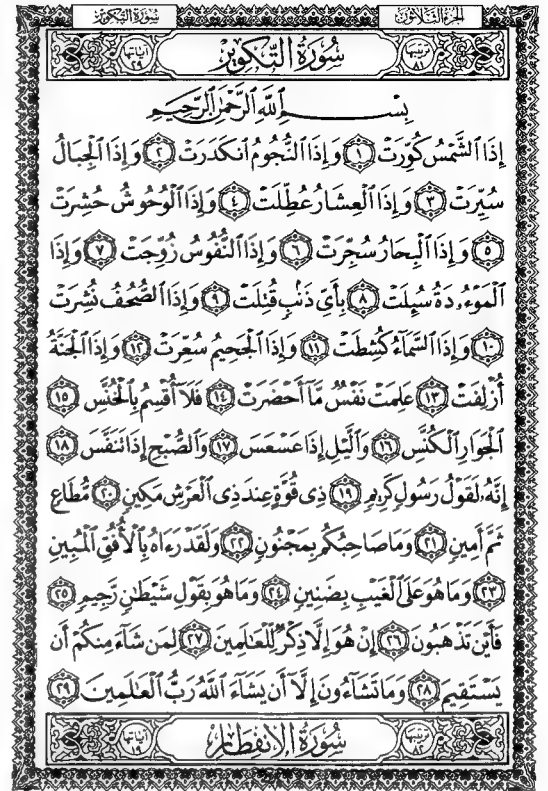 سُورَةُ التَّكْوِيرِ الجُزْءُ الثَّلَاثُونَ
آيَاتُهَا ٢٩ سُورَةُ التَّكْوِيرِ تَرْتِيبُهَا ٨١
بِسْمِ اللَّهِ الرَّحْمَٰنِ الرَّحِيمِ
إِذَا الشَّمْسُ كُوِّرَتْ ١ وَإِذَا النُّجُومُ انكَدَرَتْ ٢ وَإِذَا الْجِبَالُ
سُيِّرَتْ ٣ وَإِذَا الْعِشَارُ عُطِّلَتْ ٤ وَإِذَا الْوُحُوشُ حُشِرَتْ
٥ وَإِذَا الْبِحَارُ سُجِّرَتْ ٦ وَإِذَا النُّفُوسُ زُوِّجَتْ ٧ وَإِذَا
الْمَوْءُۥدَةُ سُئِلَتْ ٨ بِأَيِّ ذَنۢبٍ قُتِلَتْ ٩ وَإِذَا الصُّحُفُ نُشِرَتْ
١٠ وَإِذَا السَّمَاءُ كُشِطَتْ ١١ وَإِذَا الْجَحِيمُ سُعِّرَتْ ١٢ وَإِذَا الْجَنَّةُ
أُزْلِفَتْ ١٣ عَلِمَتْ نَفْسٌ مَّا أَحْضَرَتْ ١٤ فَلَا أُقْسِمُ بِالْخُنَّسِ ١٥
الْجَوَارِ الْكُنَّسِ ١٦ وَالَّيْلِ إِذَا عَسْعَسَ ١٧ وَالصُّبْحِ إِذَا تَنَفَّسَ ١٨
إِنَّهُۥ لَقَوْلُ رَسُولٍ كَرِيمٍ ١٩ ذِي قُوَّةٍ عِندَ ذِي الْعَرْشِ مَكِينٍ ٢٠ مُّطَاعٍ
ثَمَّ أَمِينٍ ٢١ وَمَا صَاحِبُكُم بِمَجْنُونٍ ٢٢ وَلَقَدْ رَءَاهُ بِالْأُفُقِ الْمُبِينِ
٢٣ وَمَا هُوَ عَلَى الْغَيْبِ بِضَنِينٍ ٢٤ وَمَا هُوَ بِقَوْلِ شَيْطَٰنٍ رَّجِيمٍ ٢٥
فَأَيْنَ تَذْهَبُونَ ٢٦ إِنْ هُوَ إِلَّا ذِكْرٌ لِّلْعَٰلَمِينَ ٢٧ لِمَن شَاءَ مِنكُمْ أَن
يَسْتَقِيمَ ٢٨ وَمَا تَشَاءُونَ إِلَّا أَن يَشَاءَ اللَّهُ رَبُّ الْعَٰلَمِينَ ٢٩
آيَاتُهَا ١٩ سُورَةُ الِانفِطَارِ تَرْتِيبُهَا ٨٢